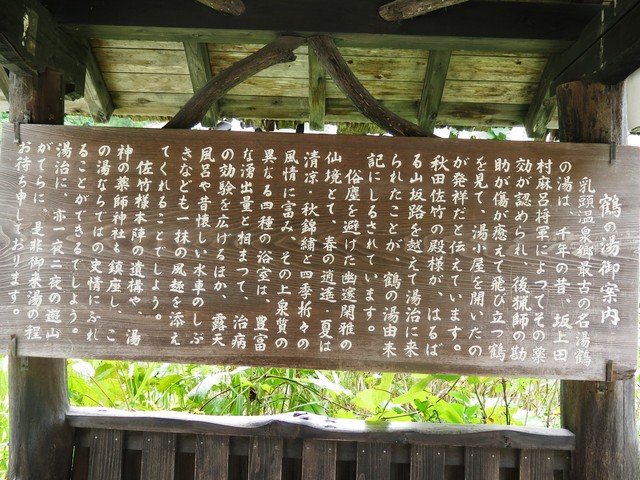 鶴の湯御案内
乳頭温泉郷最古の名湯鶴
の湯は、千年の昔、坂上田
村麻呂将軍によってその薬
効が認められ、後猟師の勘
助が傷が癒えて飛び立つ鶴
を見て、湯小屋を開いたの
が発祥だと伝えています。
秋田佐竹の殿様が、はるば
る山坂路を越えて湯治に来
られたことが、鶴の湯由来
記にしるされています。
俗塵を避けた幽邃閑雅の
仙境とて、春の逍遥・夏は
清凉、秋錦繡と四季折々の
風情に富み、その上泉質の
異なる四種の浴室は、豊富
な湧出量と相まつて、治病
の効験を広げるほか、露天
風呂や昔懐しい水車のしぶ
きなども一抹の風趣を添え
てくれることでしょう。
佐竹様本陣の遺構や、湯
神の薬師神社も鎮座し、こ
の湯ならではの史情にふれ
ることができるでしょう。
湯治に、亦一夜二夜の遊山
がてらに、是非御来湯の程
お待ち申しております。